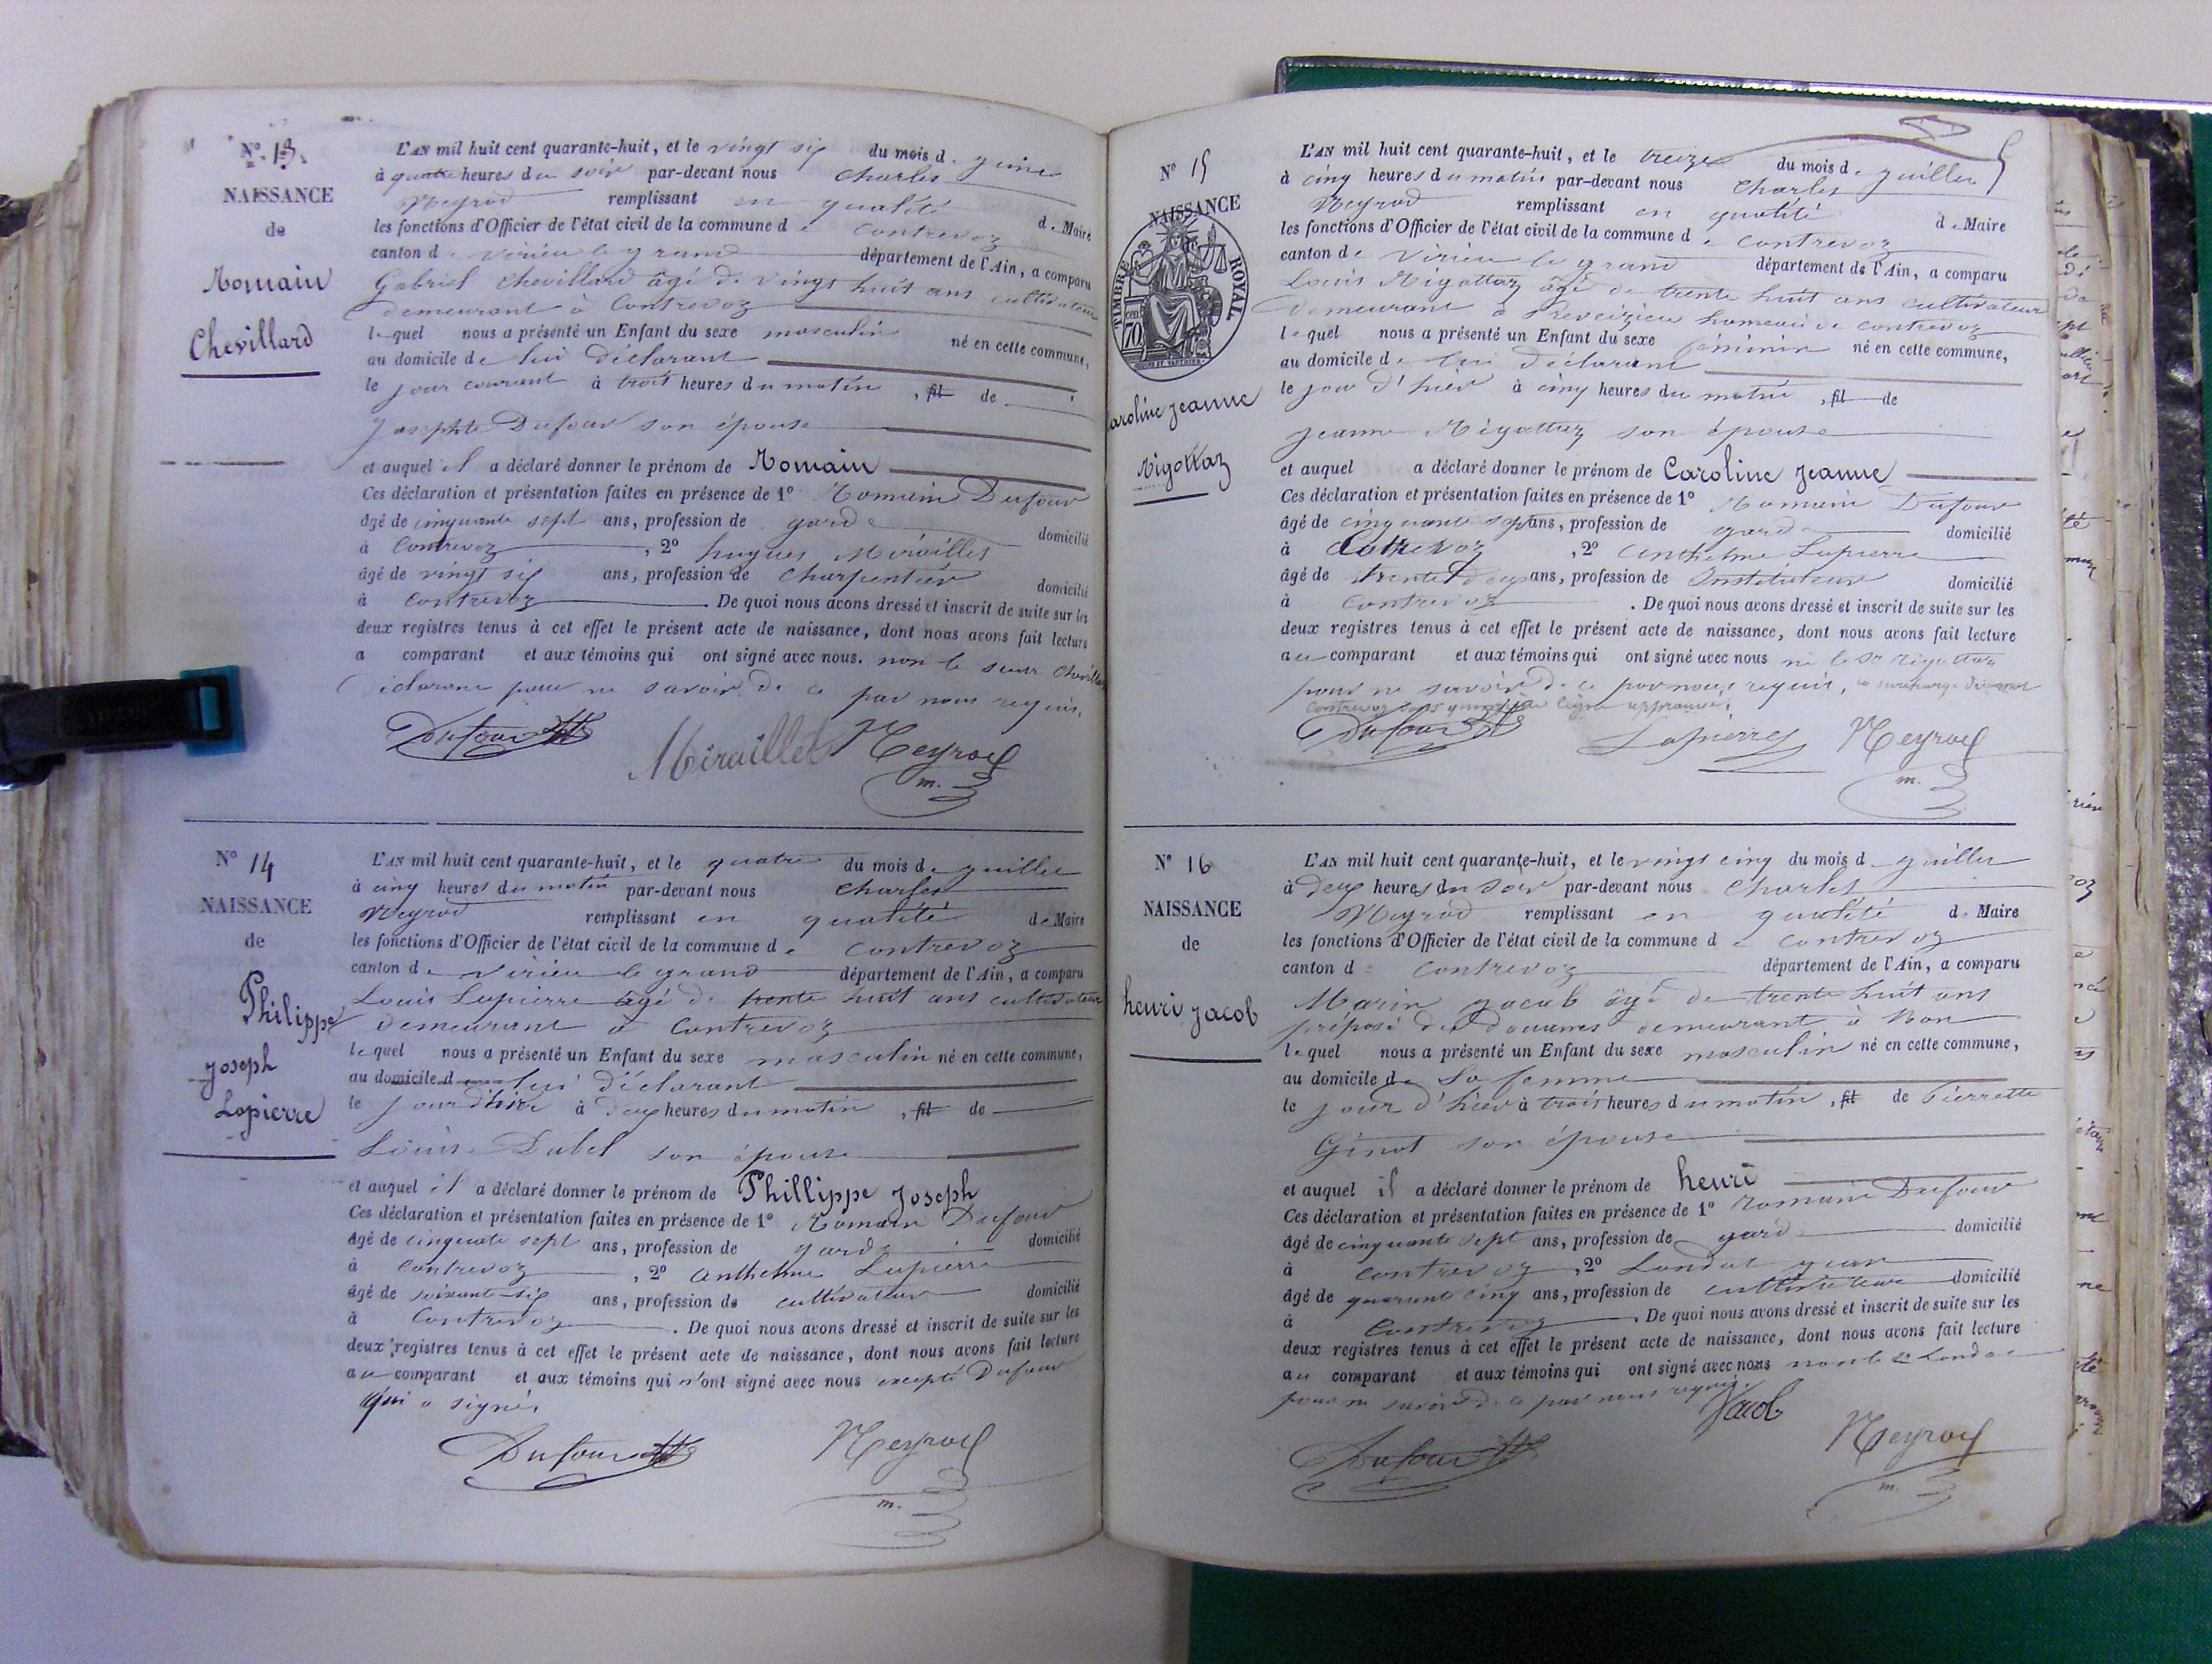 N° 13.
NAISSANCE
de
Romain
Chevillard
L'AN mil huit cent quarante-huit, et le vingt six du mois de juin
à quatre heures du soir par-devant nous Charles
Meyrod remplissant en qualité de Maire
les fonctions d'Officier de l'état civil de la commune de Contrevoz
canton de virieu le grand département de l'Ain, a comparu
Gabriel Chevillard âgé de vingt huit ans cultivateur
demeurant à Contrevoz
lequel nous a présenté un Enfant du sexe masculin né en cette commune,
au domicile de lui déclarant
le jour courant à trois heures du matin, fil de
Josephte Dufour son épouse
et auquel il a déclaré donner le prénom de Romain
Ces déclaration et présentation faites en présence de 1° Romain Dufour
âgé de cinquante sept ans, profession de garde domicilié
à Contrevoz, 2° hugues Miraillet
âgé de vingt six ans, profession de charpentier domicilié
à Contrevoz. De quoi nous avons dressé et inscrit de suite sur les
deux registres tenus à cet effet le présent acte de naissance, dont nous avons fait lecture
a comparant et aux témoins qui ont signé avec nous. non le sieur Chevillard
déclarant pour ne savoir, de ce par nous requis.
Dufour Miraillet Meyrod
m.
N° 14
NAISSANCE
de
Philippe
Joseph
Lapierre
L'AN mil huit cent quarante-huit, et le quatre du mois de juillet
à cinq heures du matin par-devant nous Charles
Meyrod remplissant en qualité de Maire
les fonctions d'Officier de l'état civil de la commune de Contrevoz
canton de virieu le grand département de l'Ain, a comparu
Louis Lapierre âgé de trente huit ans cultivateur
demeurant à Contrevoz
lequel nous a présenté un Enfant du sexe masculin né en cette commune,
au domicile de lui déclarant
le jour d'hier à deux heures du matin, fil de
Louise Dubel son épouse
et auquel il a déclaré donner le prénom de Phillippe Joseph
Ces déclaration et présentation faites en présence de 1° Romain Dufour
âgé de cinquate sept ans, profession de garde domicilié
à Contrevoz, 2° anthelme Lapierre
âgé de soixant six ans, profession de cultivateur domicilié
à Contrevoz. De quoi nous avons dressé et inscrit de suite sur les
deux registres tenus à cet effet le présent acte de naissance, dont nous avons fait lecture
au comparant et aux témoins qui n'ont signé avec nous excepté Dufour
qui a signé.
Dufour Meyrod
m.
N° 15
NAISSANCE
TIMBRE ROYAL
70
Caroline Jeanne
Rigottaz
L'AN mil huit cent quarante-huit, et le treize du mois de juillet
à cinq heures du matin par-devant nous Charles
Meyrod remplissant en qualité de Maire
les fonctions d'Officier de l'état civil de la commune de Contrevoz
canton de virieu le grand département de l'Ain, a comparu
Louis Rigottaz âgé de trente huit ans cultivateur
demeurant à Preveizieu hameau de contrevoz
lequel nous a présenté un Enfant du sexe féminin né en cette commune,
au domicile de lui déclarant
le jour d'hier à cinq heures du matin, fil de
Jeanne Rigottaz son épouse
et auquel a déclaré donner le prénom de Caroline Jeanne
Ces déclaration et présentation faites en présence de 1° Romain Dufour
âgé de cinquante sept ans, profession de garde domicilié
à Contrevoz, 2° anthelme Lapierre
âgé de trente deux ans, profession de Instituteur domicilié
à Contrevoz. De quoi nous avons dressé et inscrit de suite sur les
deux registres tenus à cet effet le présent acte de naissance, dont nous avons fait lecture
au comparant et aux témoins qui ont signé avec nous ni le Sr rigottaz
pour ne savoir de ce par nous requis, la surcharge du mot
Contrevoz ligne approuvée.
Dufour Lapierre Meyrod
m.
N° 16
NAISSANCE
de
henri jacob
L'AN mil huit cent quarante-huit, et le vingt cinq du mois de juillet
à deux heures du soir par-devant nous Charles
Meyrod remplissant en qualité de Maire
les fonctions d'Officier de l'état civil de la commune de Contrevoz
canton de Contrevoz département de l'Ain, a comparu
Marin jacob âgé de trente huit ans
préposé des douanes demeurant à
lequel nous a présenté un Enfant du sexe masculin né en cette commune,
au domicile de sa femme
le jour d'hier à trois heures du matin, fil de Pierrette
Ginot son épouse
et auquel il a déclaré donner le prénom de henri
Ces déclaration et présentation faites en présence de 1° romain Dufour
âgé de cinquante sept ans, profession de garde domicilié
à Contrevoz, 2° Landat jean
âgé de quarante cinq ans, profession de cultivateur domicilié
à Contrevoz. De quoi nous avons dressé et inscrit de suite sur les
deux registres tenus à cet effet le présent acte de naissance, dont nous avons fait lecture
au comparant et aux témoins qui ont signé avec nous non le Sr Landat
pour ne savoir de ce par nous requis.
Jacob
Dufour Meyrod
m.